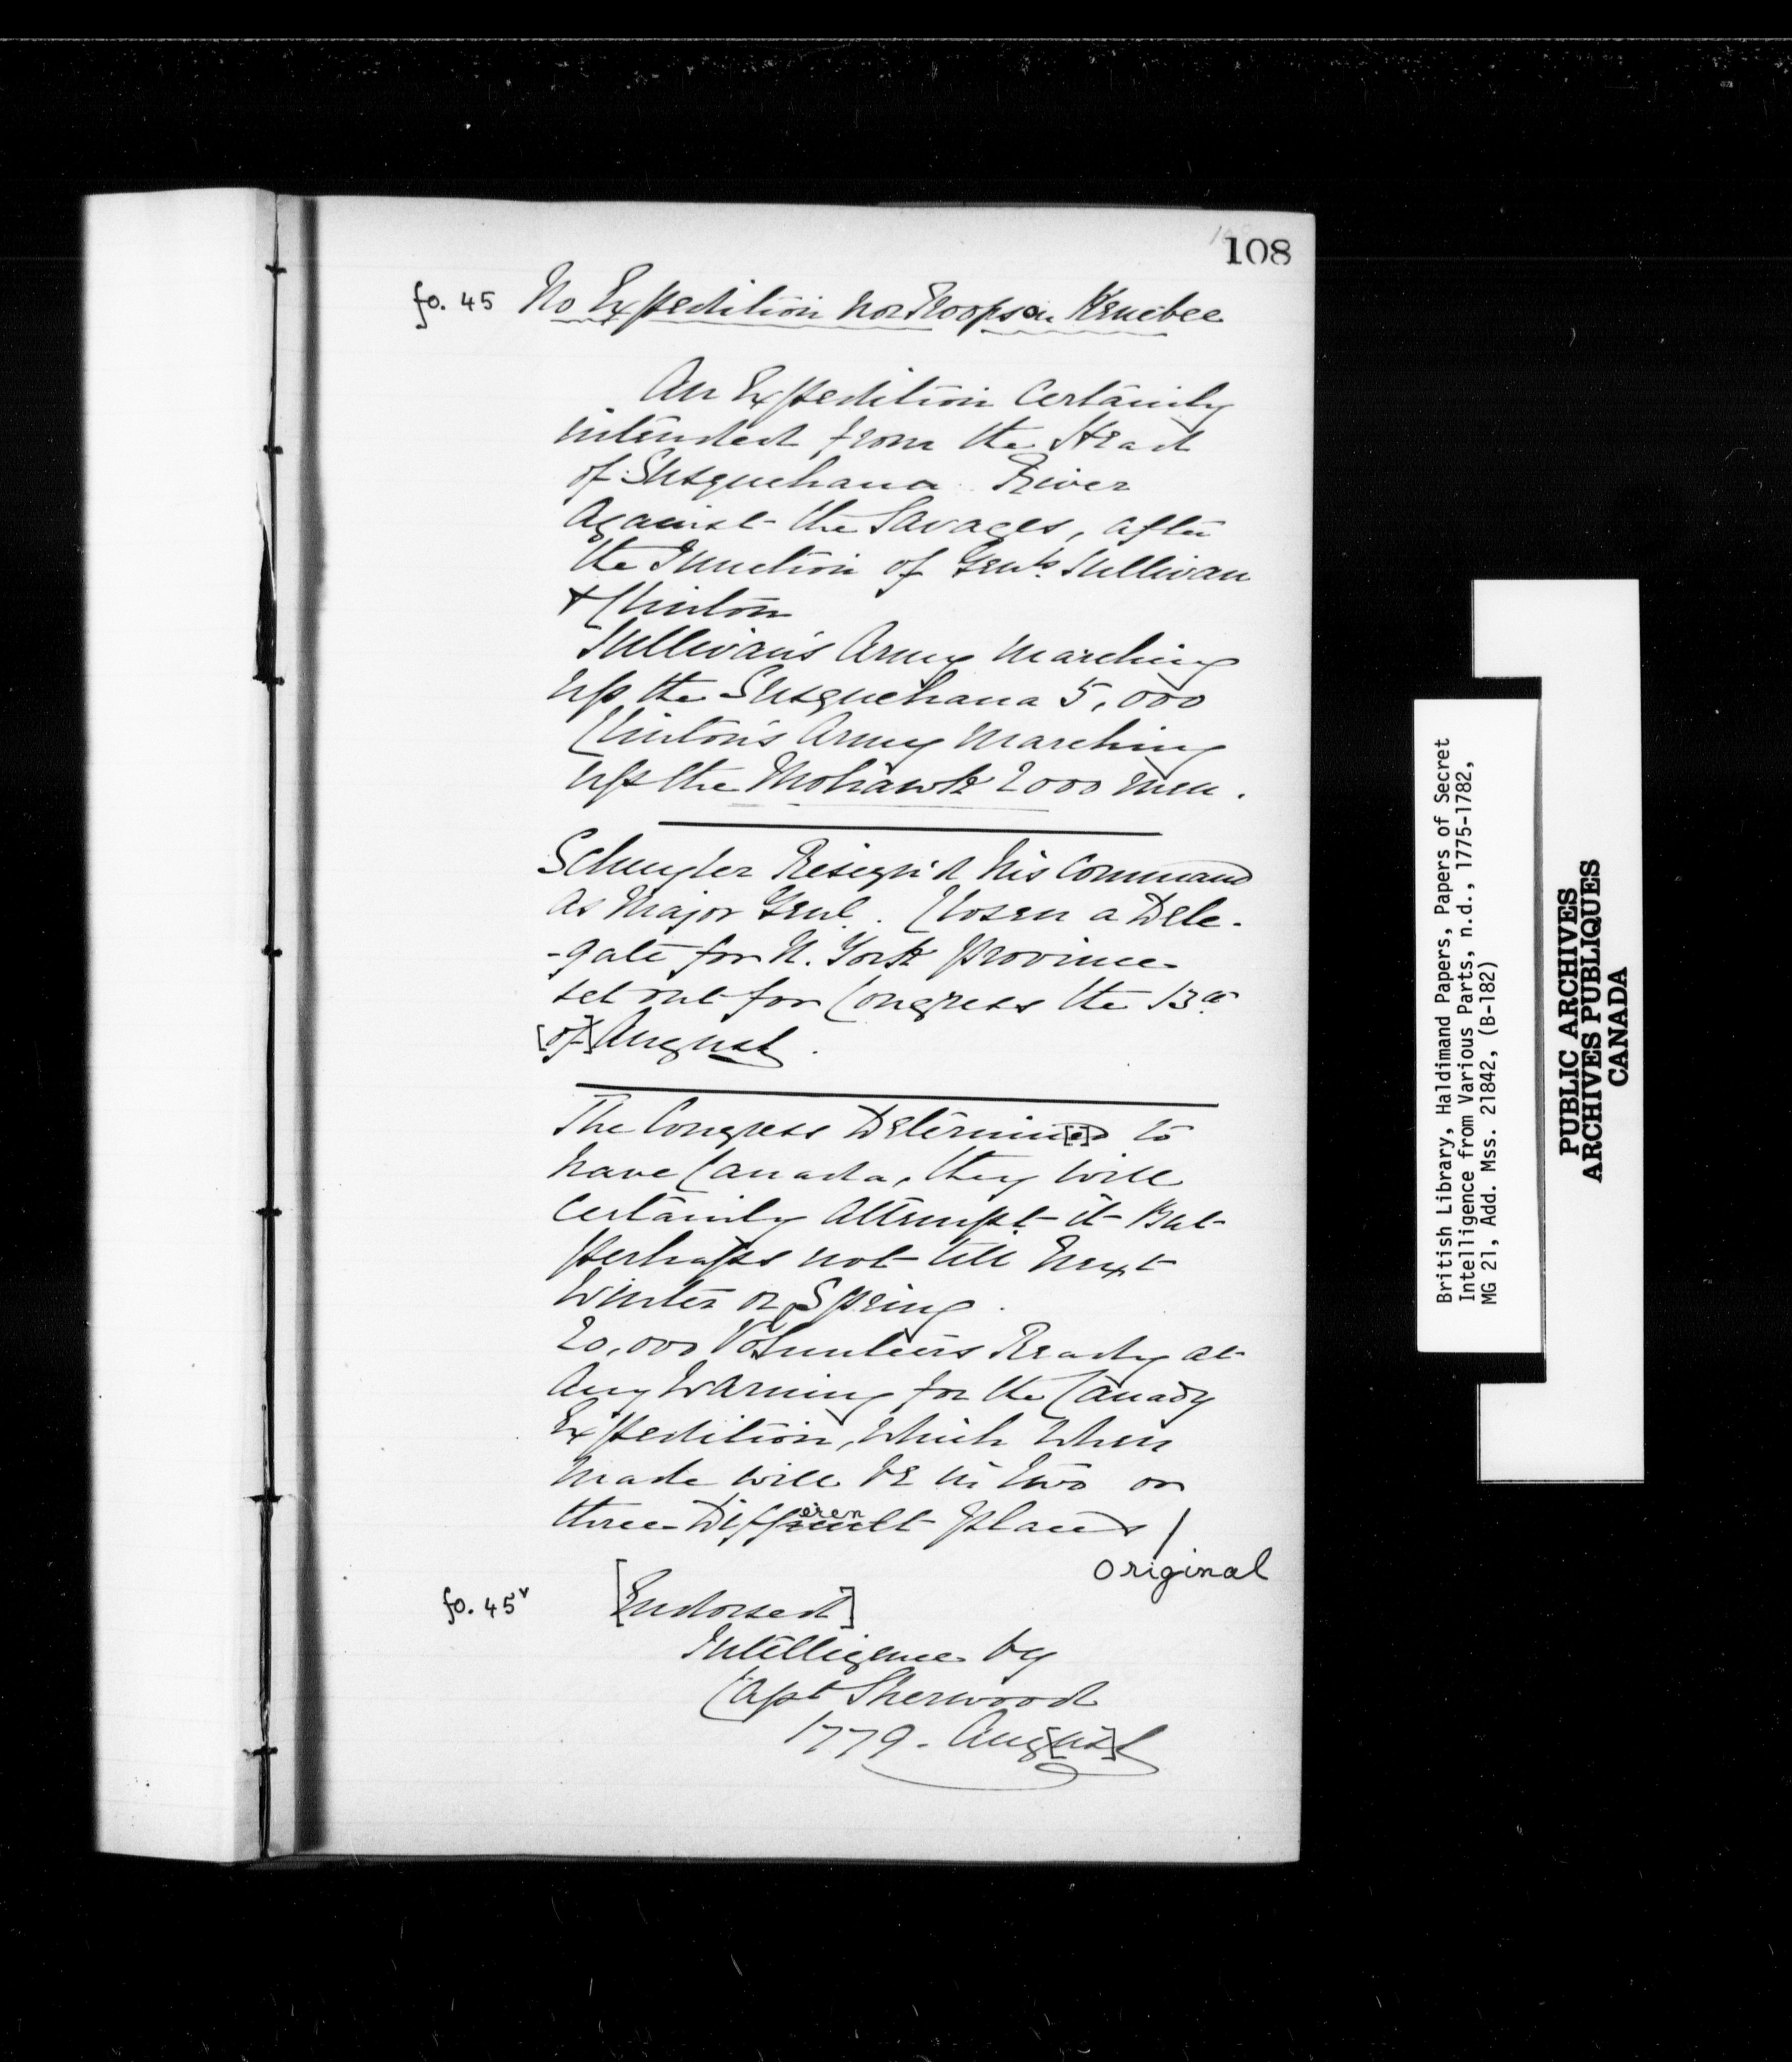 108
fo. 45 No Expedition nor Troops on Kenebec
An Expedition Certainly
intended from the Head
of Susquehana River
Against the Savages, after
the Junction of Genls. Sullivan
& Clinton
Sullivan's Army Marching
up the Susquehana 5,000
Clinton's Army Marching
up the Mohawk 2000 Men.
Schuyler Resign'd his Command
As Major Genl. Chosen a Dele-
-gate for N. York province
set out for Congress the 13th
[of] August.
The Congress Determin[e]d to
have Canada, they will
Certainly Attempt it But
perhaps not till Next
Winter or Spring.
20,000 Volunteers Ready at
Any Warning for the Canady
Expedition, Which When
Made will be in two or
three Different places /
original
fo. 45v [Endorsed]
Intelligence by
Capt Sherwood
1779. Aug[us]t
British Library, Haldimand Papers, Papers of Secret
Intelligence from Various Parts, n.d., 1775-1782,
MG 21, Add. Mss. 21842, (B-182)
PUBLIC ARCHIVES
ARCHIVES PUBLIQUES
CANADA